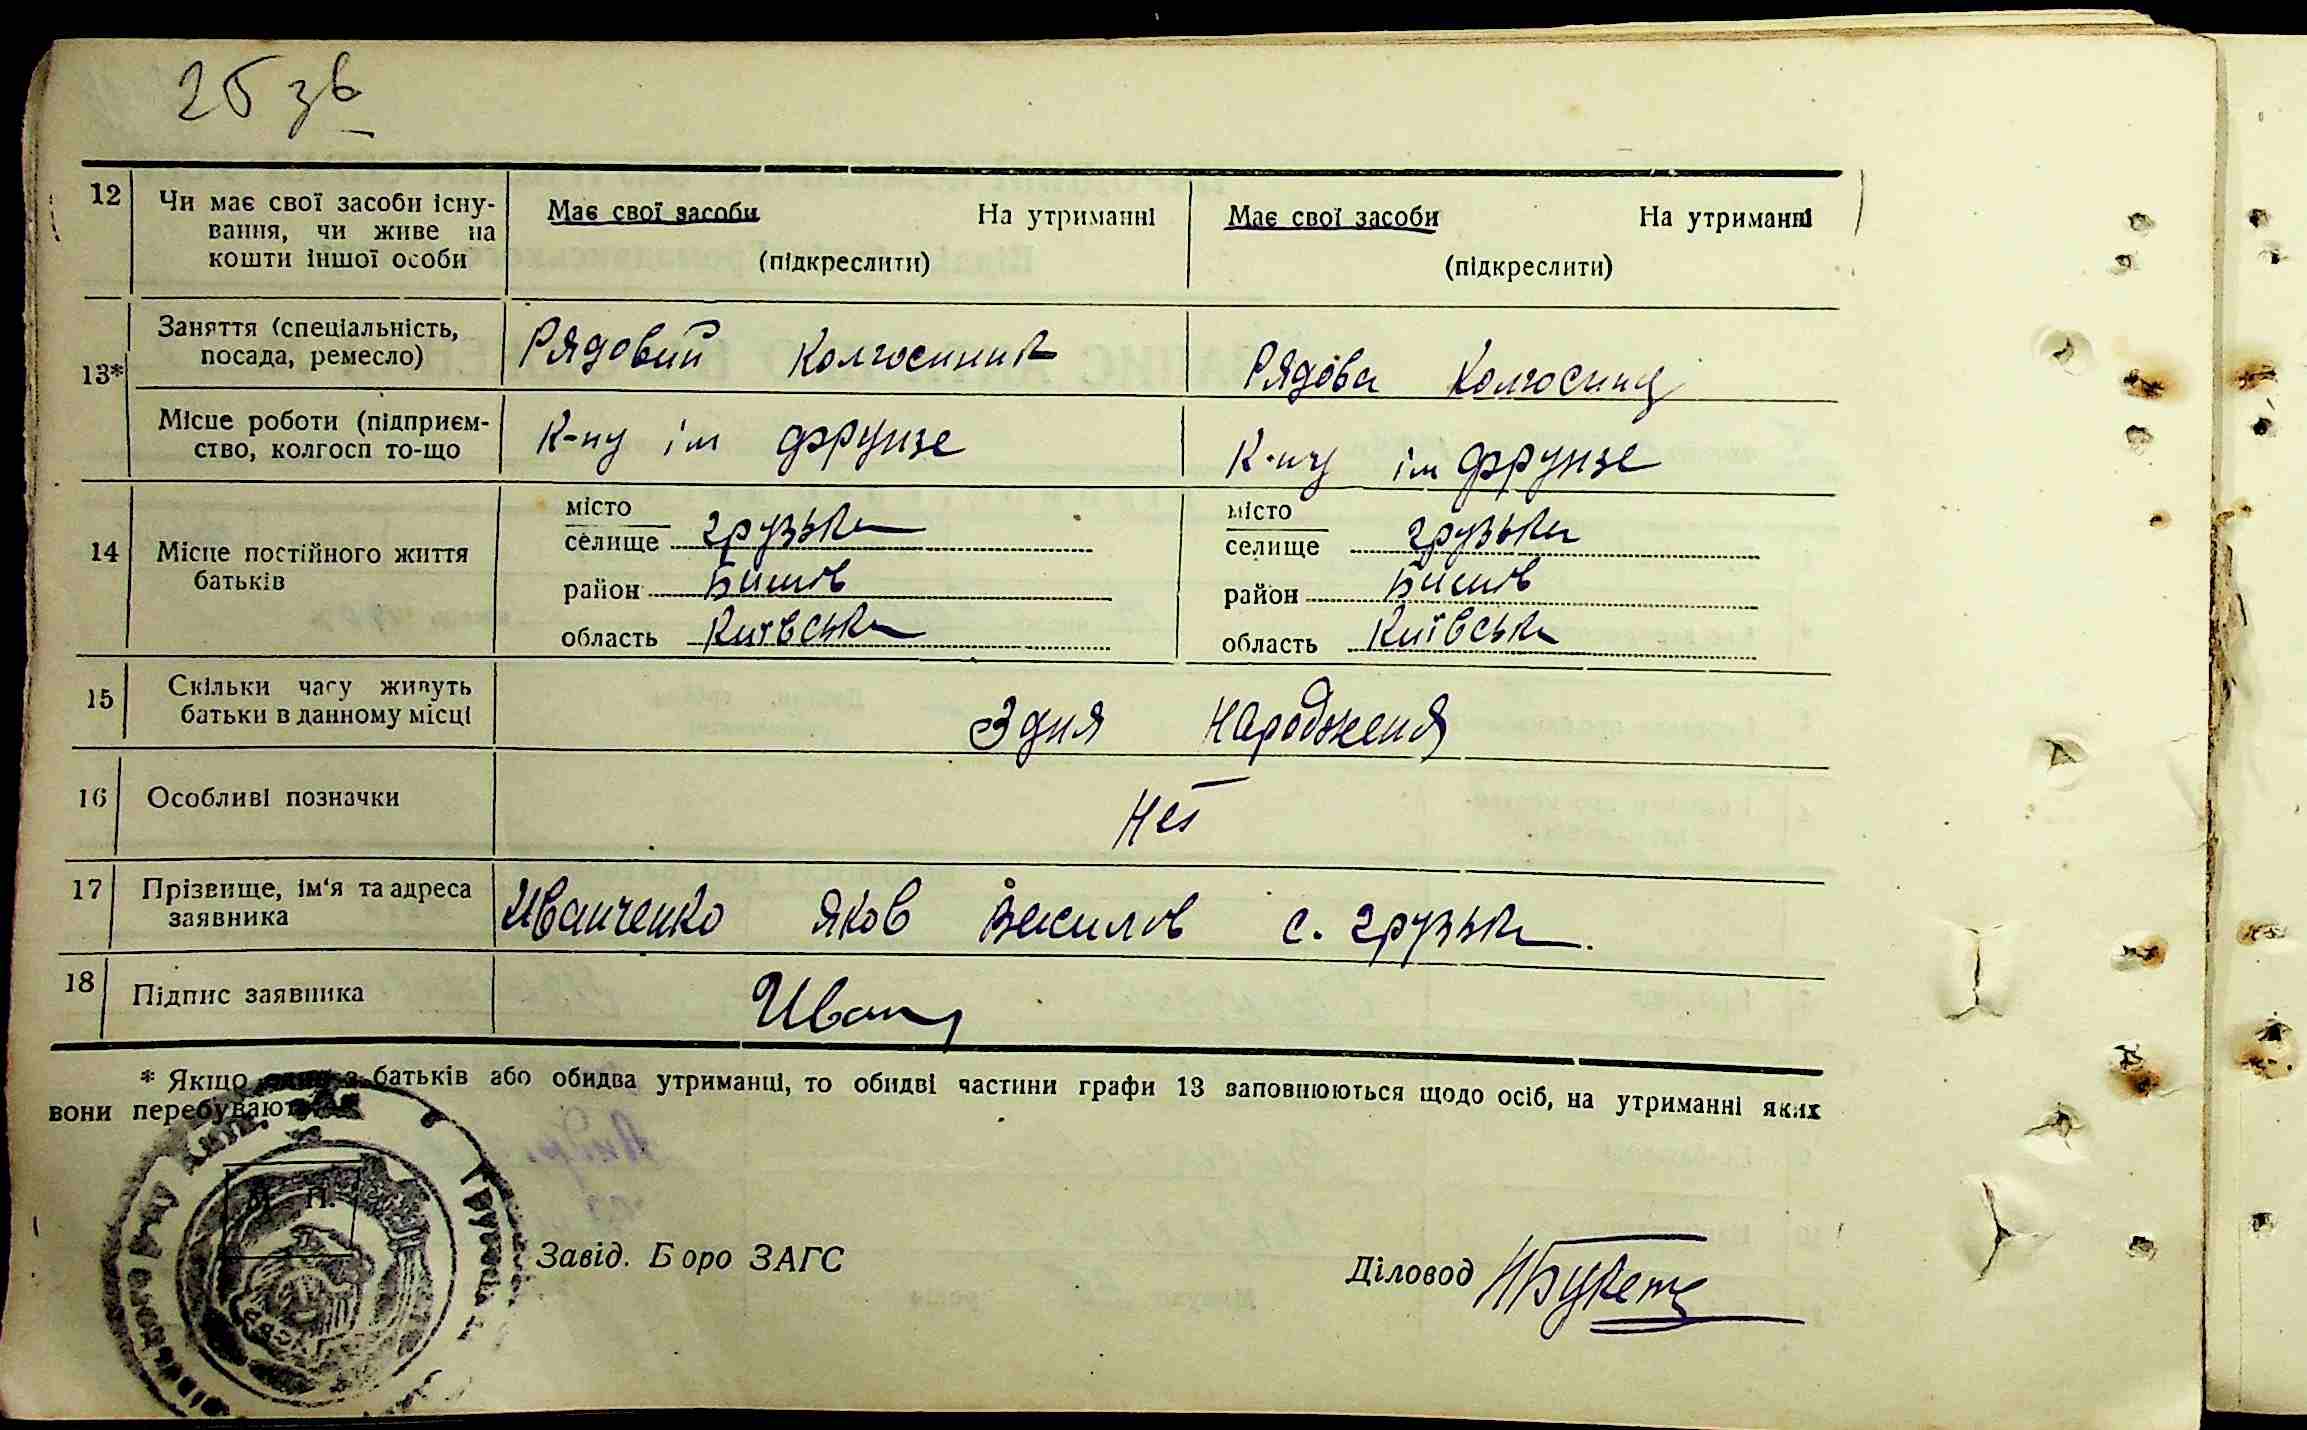 25 зв
12 Чи має свої засоби існу-
вання, чи живе на
кошти іншої особи
Має свої засоби На утриманні
(підкреслити)
Має свої засоби На утриманні
(підкреслити)
13* Заняття (спеціальність,
посада, ремесло)
Рядовий Колгоспник
Рядова Колгоспниц
Місце роботи (підприєм-
ство, колгосп то-що
К-пу ім Фрунзе
К-пу ім Фрунзе
14 Місце постійного життя
батьків
місто
селище Грузька
район Бишів
область Київська
місто
селище Грузька
район Бишів
область Київська
15 Скільки часу живуть
батьки в данному місці
З дня народження
16 Особливі позначки
Нет
17 Прізвище, ім'я та адреса
заявника
Иванченко Яков Василов с. Грузька.
18 Підпис заявника
Иван
* Якщо з батьків або обидва утриманці, то обидві частини графи 13 заповнюються щодо осіб, на утриманні яких
вони перебувають
М. П.
Завід. Бюро ЗАГС
Діловод